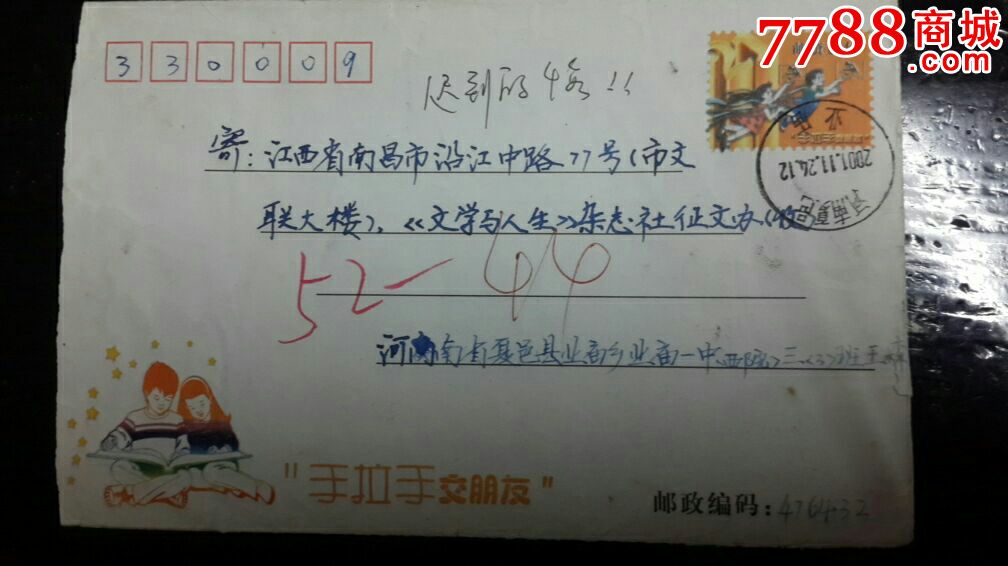 7788商城
330009
迟到的
寄:江西省南昌市沿江中路77号(市文
联大楼),《文学与人生》杂志社征文办(收)
52-44
河南省夏邑县业庙乡业庙一中(西院)三(3)班王
2001.11.24.12
河南夏邑
"手拉手交朋友"
邮政编码:476432